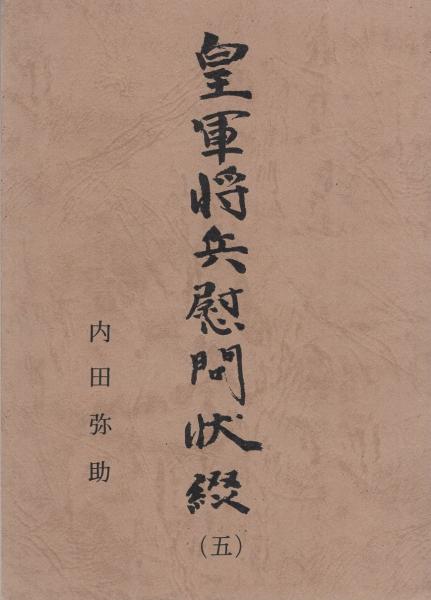 皇軍将兵慰問状綴
(五)
内田弥助